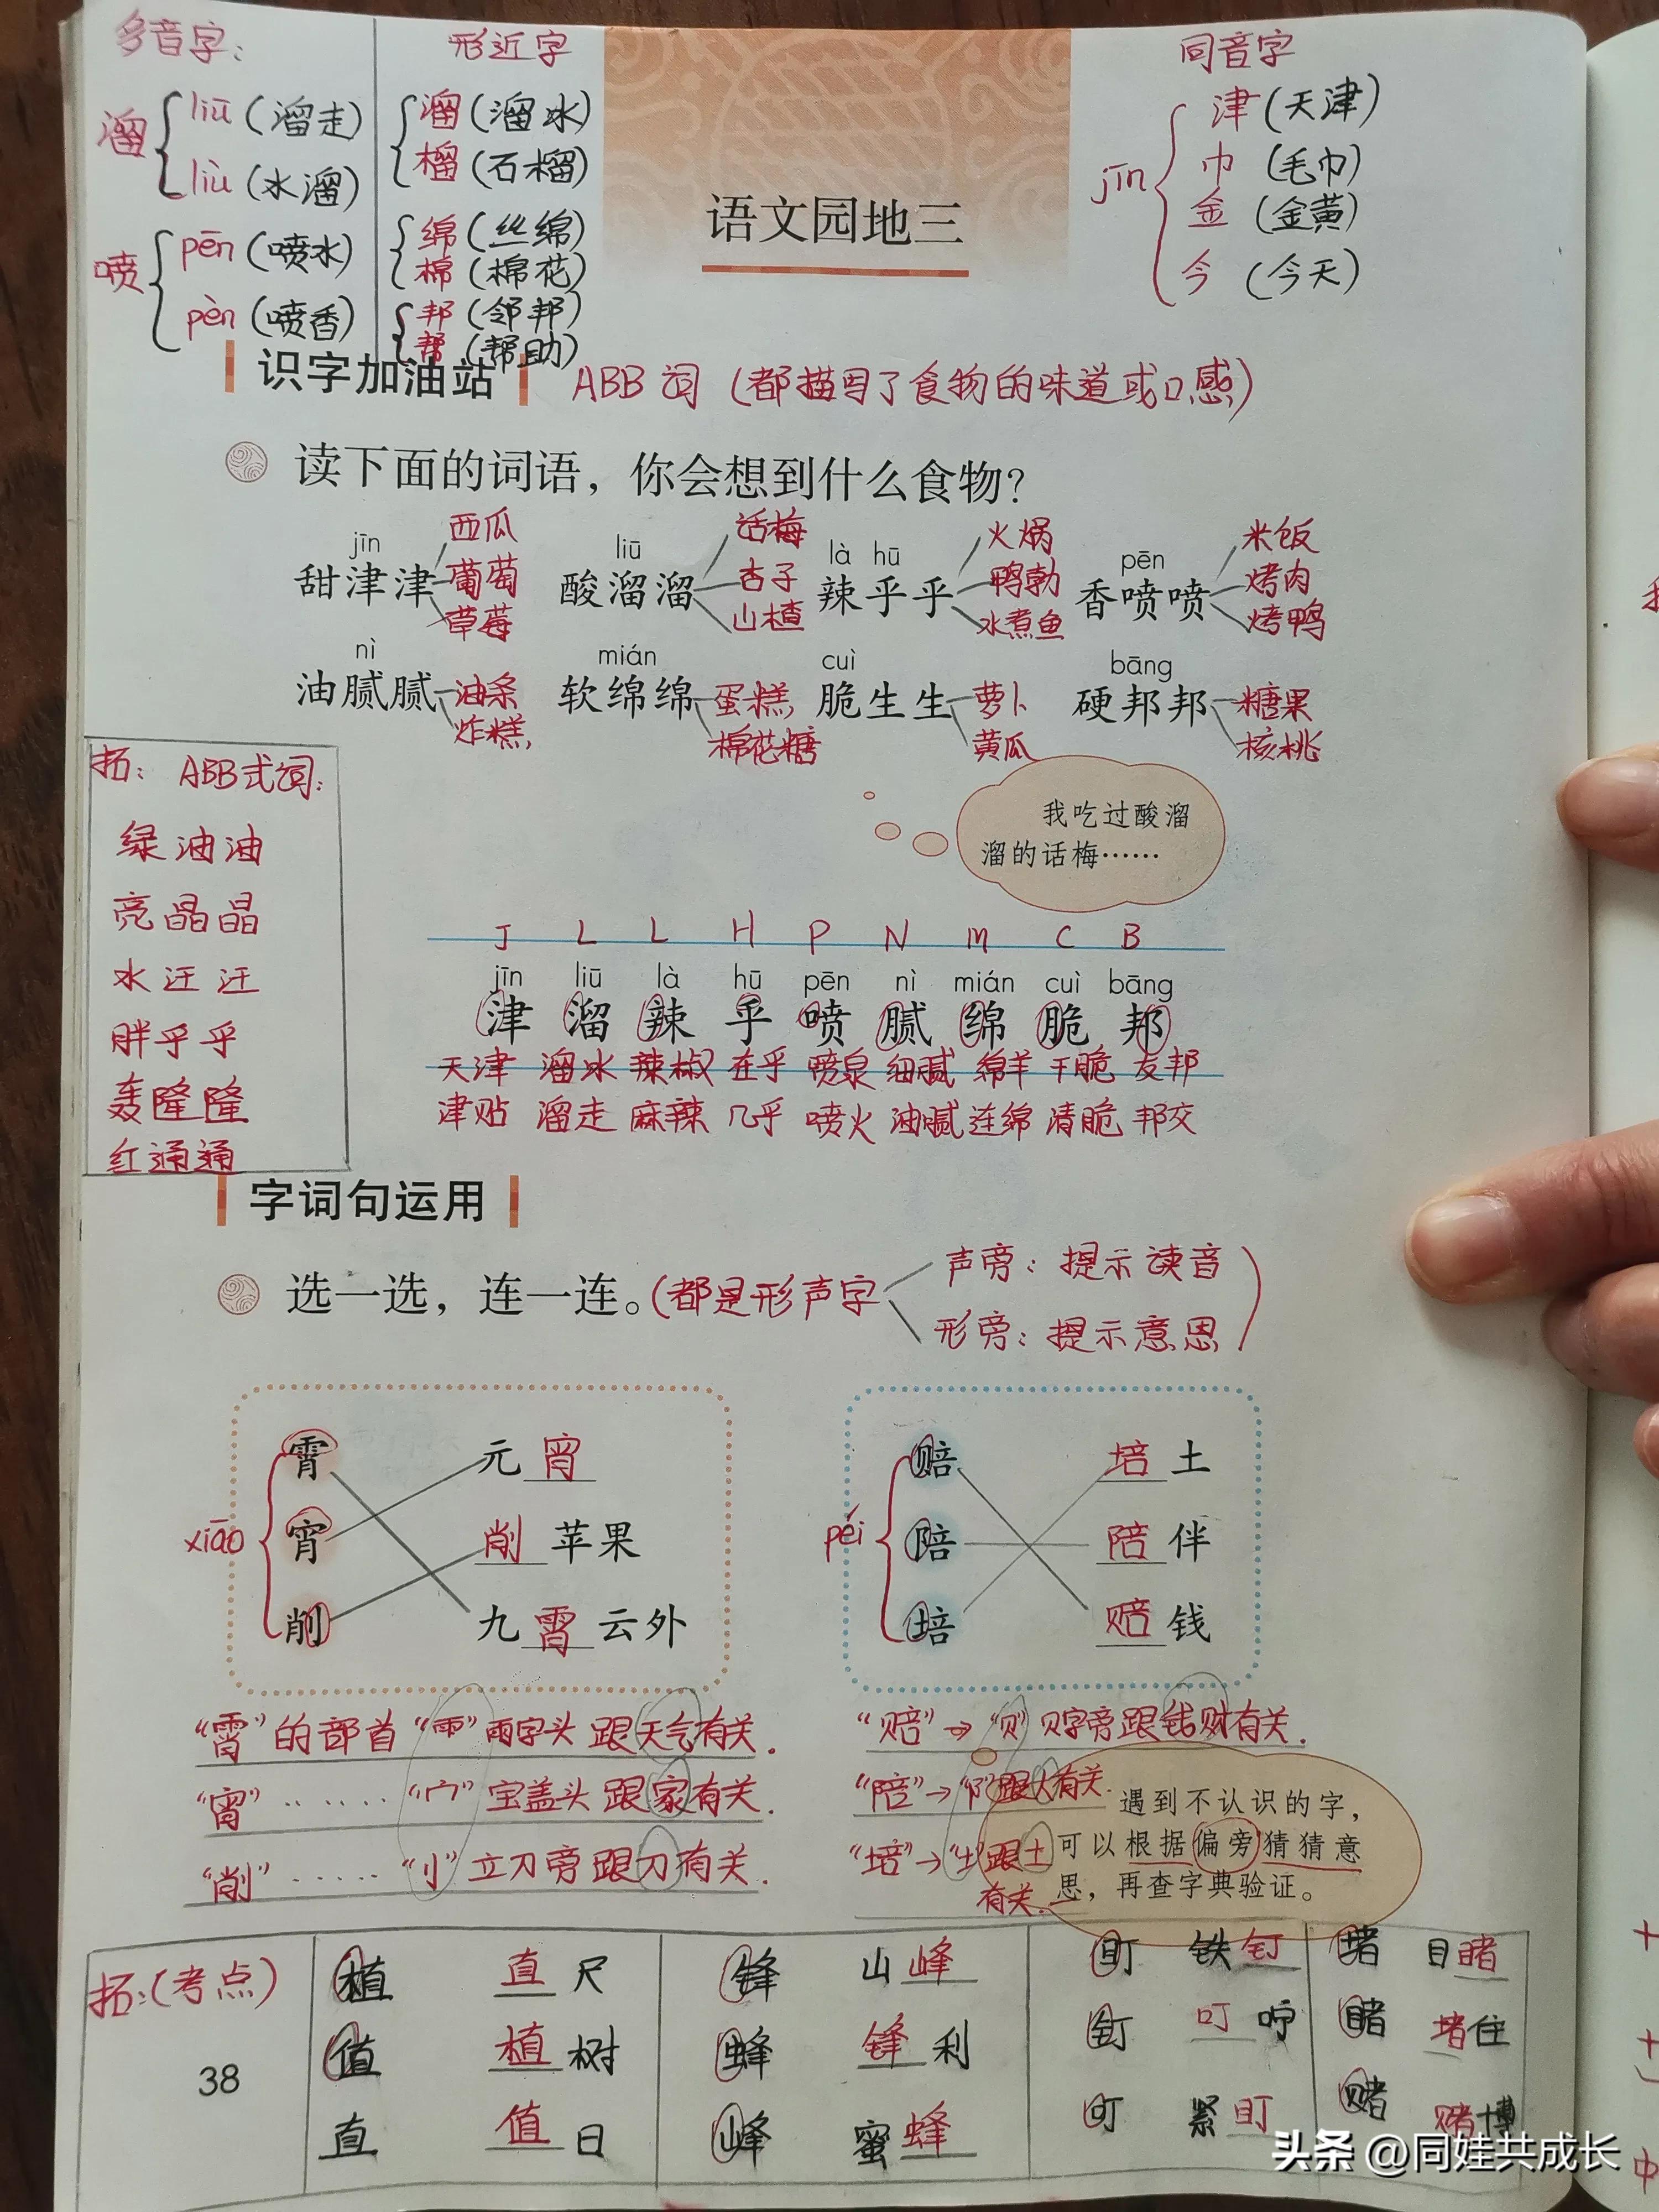 多音字：
溜 liū（溜走）
liù（水溜）
喷 pēn（喷水）
pèn（喷香）
形近字
溜（溜冰）
榴（石榴）
绵（丝绵）
棉（棉花）
邦（邻邦）
帮（帮助）
语文园地三
同音字
jīn
津（天津）
巾（毛巾）
金（金黄）
今（今天）
识字加油站 ABB词（都描写了食物的味道或口感）
读下面的词语，你会想到什么食物？
jīn liū là hū pēn
甜津津 酸溜溜 辣乎乎 香喷喷
西瓜 话梅 火锅 米饭
葡萄 杏子 鸭勃 烤肉
草莓 山楂 水煮鱼 烤鸭
nì mián cuì bāng
油腻腻 软绵绵 脆生生 硬邦邦
油条 蛋糕 萝卜 糖果
炸糕 棉花糖 黄瓜 核桃
我吃过酸溜
溜的话梅……
拓：ABB式词：
绿油油
亮晶晶
水汪汪
胖乎乎
轰隆隆
红通通
J L L H P N M C B
jīn liū là hū pēn nì mián cuì bāng
津 溜 辣 乎 喷 腻 绵 脆 邦
天津 溜冰 辣椒 在乎 喷泉 细腻 绵羊 干脆 友邦
津贴 溜走 麻辣 几乎 喷火 油腻 连绵 清脆 邦交
字词句运用
选一选，连一连。（都是形声字
声旁：提示读音
形旁：提示意思）
xiāo
霄 元宵
宵 削苹果
削 九霄云外
péi
赔 培土
陪 陪伴
培 赔钱
“霄”的部首“⻗”雨字头 跟天气有关.
“宵”……“宀”宝盖头 跟家有关.
“削”……“刂”立刀旁 跟刀有关.
“赔”→“贝”贝字旁跟钱财有关.
“陪”→“阝”跟人有关.
“培”→“土”跟土
有关.
遇到不认识的字，
可以根据偏旁猜猜意
思，再查字典验证。
拓：（考点）
植 直尺
值 植树
直 值日
锋 山峰
蜂 锋利
峰 蜜蜂
盯 铁钉
钉 叮咛
叮 紧盯
堵 目睹
睹 堵住
赌 赌博
38
头条 @同娃共成长